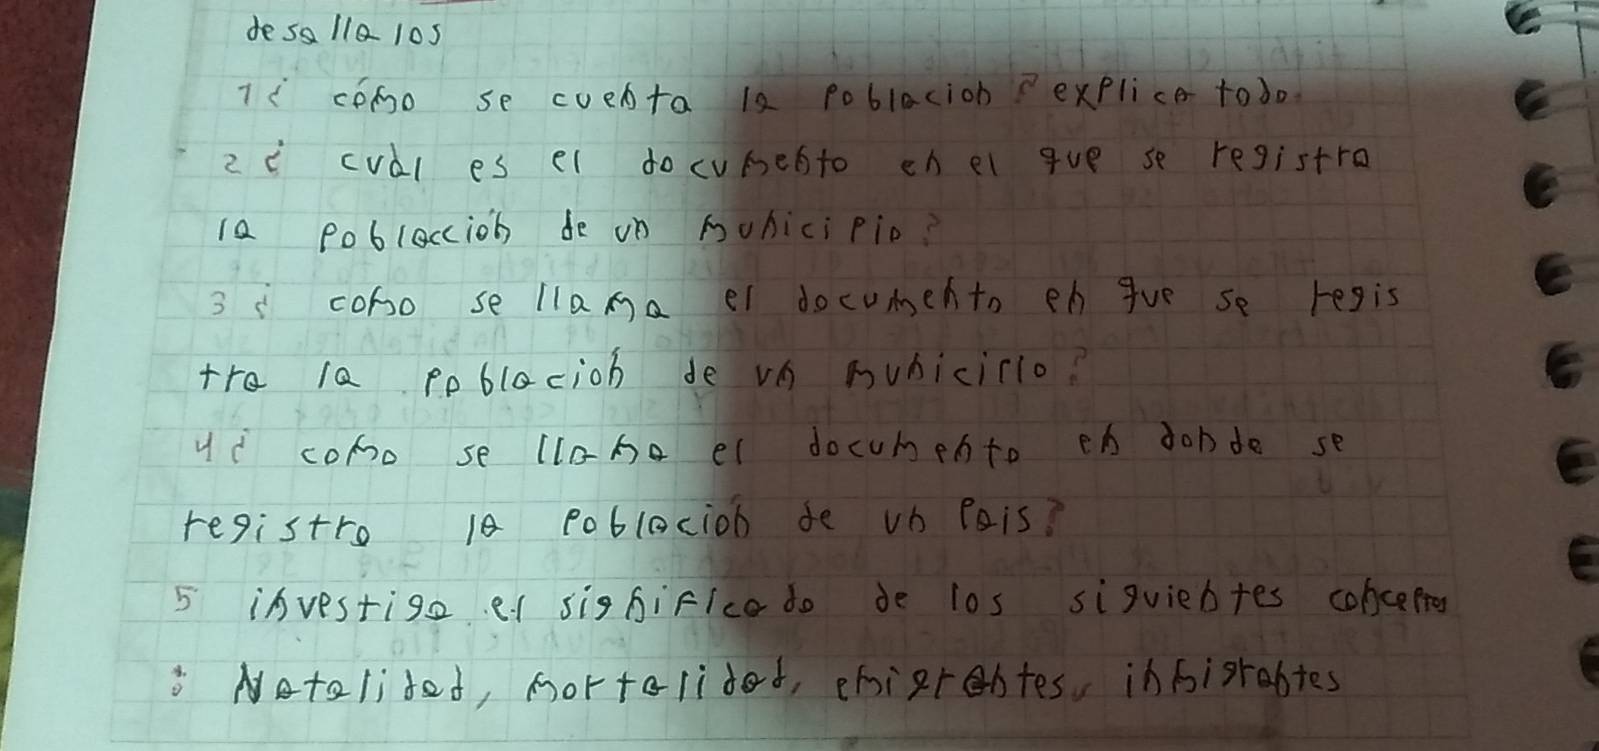 desalla los
1¿ cómo se cuenta la poblacion? explica todo
2¿ cuál es el documento en el que se registra
la poblacción de un municipio?
3¿ como se llama el documento en que se regis
tra la población de un municiplo?
4¿ como se llama el documento en donde se
registra la población de un Pais?
5 investiga el significado de los siguientes conceptos
: Natalidad, mortalidad, emigrantes, inmigrantes